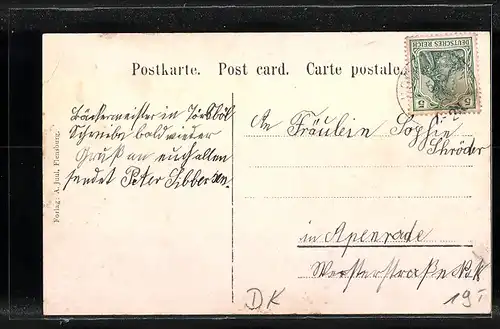 Postkarte. Post card. Carte postale.
DEUTSCHES REICH
5 5
Bäckermeister in Jörlböl
Schreibe bald wieder
Gruß an euch allen
sendet Peter
An Fräulein Sophie
Schröder
in Apenrade
Westerstraße
Verlag: A. Juul, Flensburg.
DK
19